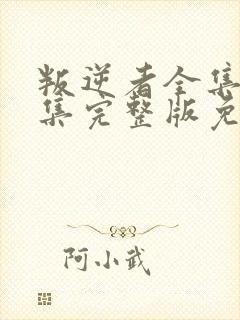 叛逆者全集
集完整版免
阿小武